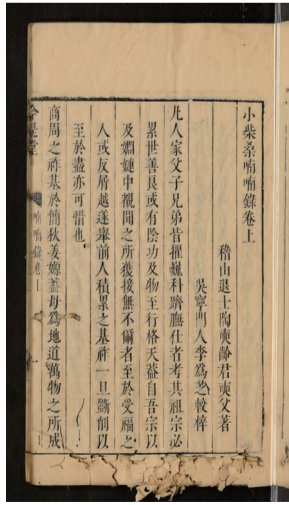 小柴桑喃喃錄卷上
稽山退士陶奭齡君奭父著
吳寧門人李為芝較梓
凡人家父子兄弟皆擢巍科躋膴仕者考其祖宗必
累世善良或有陰功及物至行格天葢自吾宗以
及婣媾中親聞之所獲接無不爾者至於受福之
人或反屑越遂舉前人積累之基祚一旦斷削以
至於盡亦可惜也
商周之祚基於簡狄姜嫄葢母為地道萬物之所成
喃喃錄卷上
一